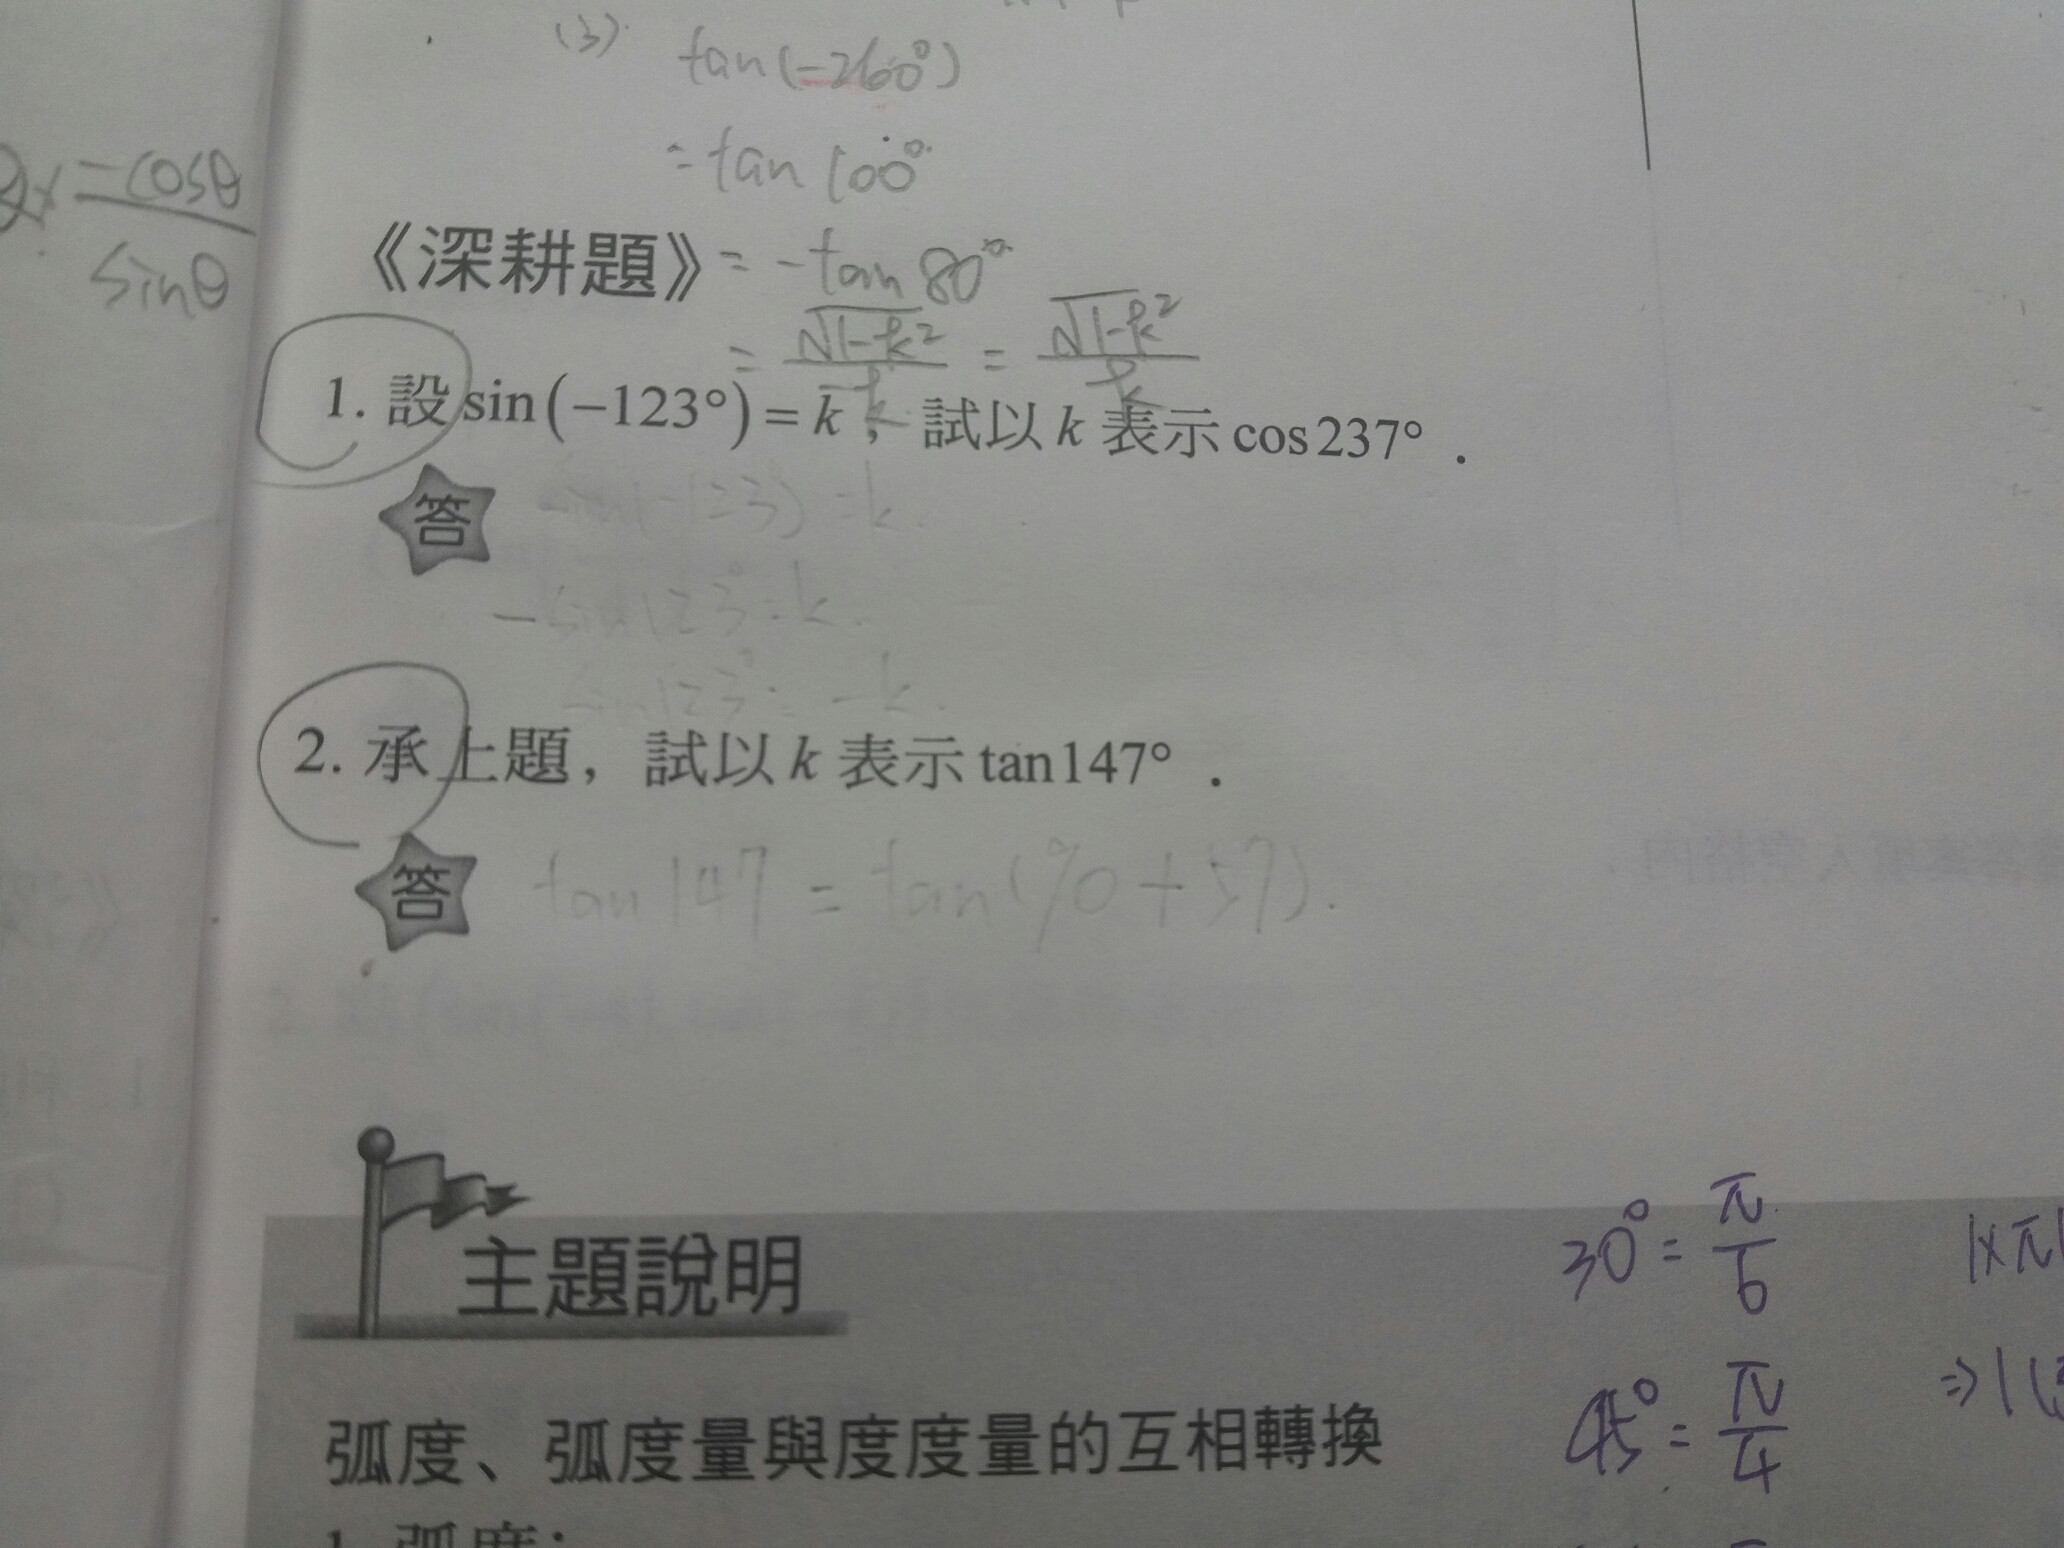 (3) tan(-260°)
= tan 100°
= -tan 80°
= √1-k² / -k = √1-k² / k
= cosθ / sinθ
《深耕題》
1. 設 sin(−123°) = k，試以 k 表示 cos237°．
答
sin(-123) = k.
-sin123° = k.
sin123° = -k.
2. 承上題，試以 k 表示 tan147°．
答
tan 147 = tan(90+57).
主題說明
30° = π/6
45° = π/4
弧度、弧度量與度度量的互相轉換
1. 弧度：